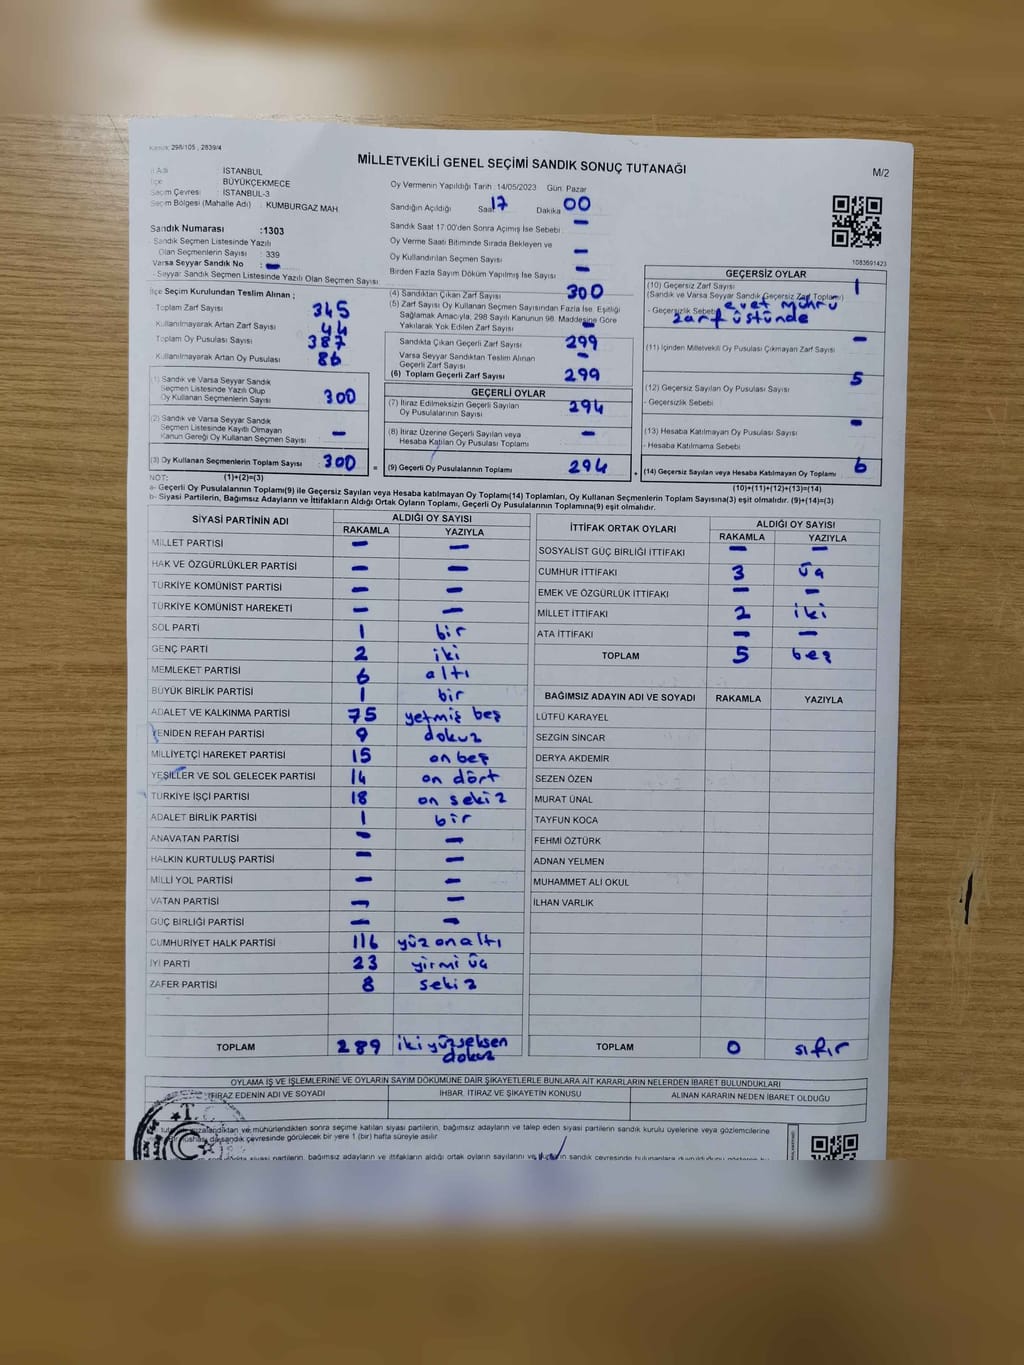 Kanun: 298/105 , 2839/4
MİLLETVEKİLİ GENEL SEÇİMİ SANDIK SONUÇ TUTANAĞI
M/2
İl Adı : İSTANBUL
İlçe : BÜYÜKÇEKMECE
Seçim Çevresi : İSTANBUL-3
Seçim Bölgesi (Mahalle Adı) : KUMBURGAZ MAH.
Oy Vermenin Yapıldığı Tarih :14/05/2023 Gün: Pazar
Sandığın Açıldığı Saat 17 Dakika 00
Sandık Saat 17:00'den Sonra Açımış İse Sebebi : —
Oy Verme Saati Bitiminde Sırada Bekleyen ve
Oy Kullandırılan Seçmen Sayısı —
Birden Fazla Sayım Döküm Yapılmış İse Sayısı —
Sandık Numarası :1303
Sandık Seçmen Listesinde Yazılı
Olan Seçmenlerin Sayısı : 339
Varsa Seyyar Sandık No : —
- Seyyar Sandık Seçmen Listesinde Yazılı Olan Seçmen Sayısı
1083691423
İlçe Seçim Kurulundan Teslim Alınan ;
Toplam Zarf Sayısı 345
Kullanılmayarak Artan Zarf Sayısı 44
Toplam Oy Pusulası Sayısı 387
Kullanılmayarak Artan Oy Pusulası 86
(1) Sandık ve Varsa Seyyar Sandık
Seçmen Listesinde Yazılı Olup
Oy Kullanan Seçmenlerin Sayısı 300
(2) Sandık ve Varsa Seyyar Sandık
Seçmen Listesinde Kayıtlı Olmayan
Kanun Gereği Oy Kullanan Seçmen Sayısı —
(3) Oy Kullanan Seçmenlerin Toplam Sayısı 300
(1)+(2)=(3)
(4) Sandıktan Çıkan Zarf Sayısı 300
(5) Zarf Sayısı Oy Kullanan Seçmen Sayısından Fazla İse, Eşitliği
Sağlamak Amacıyla, 298 Sayılı Kanunun 98. Maddesine Göre
Yakılarak Yok Edilen Zarf Sayısı —
Sandıkta Çıkan Geçerli Zarf Sayısı 299
Varsa Seyyar Sandıktan Teslim Alınan
Geçerli Zarf Sayısı —
(6) Toplam Geçerli Zarf Sayısı 299
GEÇERLİ OYLAR
(7) İtiraz Edilmeksizin Geçerli Sayılan
Oy Pusulalarının Sayısı 294
(8) İtiraz Üzerine Geçerli Sayılan veya
Hesaba Katılan Oy Pusulası Toplamı —
= (9) Geçerli Oy Pusulalarının Toplamı 294
GEÇERSİZ OYLAR
(10) Geçersiz Zarf Sayısı 1
(Sandık ve Varsa Seyyar Sandık Geçersiz Zarf Toplamı)
- Geçersizlik Sebebi evet mührü
zarf üstünde
(11) İçinden Milletvekili Oy Pusulası Çıkmayan Zarf Sayısı —
(12) Geçersiz Sayılan Oy Pusulası Sayısı 5
- Geçersizlik Sebebi
(13) Hesaba Katılmayan Oy Pusulası Sayısı —
- Hesaba Katılmama Sebebi
+ (14) Geçersiz Sayılan veya Hesaba Katılmayan Oy Toplamı 6
(10)+(11)+(12)+(13)=(14)
NOT:
a- Geçerli Oy Pusulalarının Toplamı(9) ile Geçersiz Sayılan veya Hesaba katılmayan Oy Toplamı(14) Toplamları, Oy Kullanan Seçmenlerin Toplam Sayısına(3) eşit olmalıdır. (9)+(14)=(3)
b- Siyasi Partilerin, Bağımsız Adayların ve İttifakların Aldığı Ortak Oyların Toplamı, Geçerli Oy Pusulalarının Toplamına(9) eşit olmalıdır.
SİYASİ PARTİNİN ADI ALDIĞI OY SAYISI
RAKAMLA YAZIYLA
MİLLET PARTİSİ — —
HAK VE ÖZGÜRLÜKLER PARTİSİ — —
TÜRKİYE KOMÜNİST PARTİSİ — —
TÜRKİYE KOMÜNİST HAREKETİ — —
SOL PARTİ 1 bir
GENÇ PARTİ 2 iki
MEMLEKET PARTİSİ 6 altı
BÜYÜK BİRLİK PARTİSİ 1 bir
ADALET VE KALKINMA PARTİSİ 75 yetmiş beş
YENİDEN REFAH PARTİSİ 9 dokuz
MİLLİYETÇİ HAREKET PARTİSİ 15 on beş
YEŞİLLER VE SOL GELECEK PARTİSİ 14 on dört
TÜRKİYE İŞÇİ PARTİSİ 18 on sekiz
ADALET BİRLİK PARTİSİ 1 bir
ANAVATAN PARTİSİ — —
HALKIN KURTULUŞ PARTİSİ — —
MİLLİ YOL PARTİSİ — —
VATAN PARTİSİ — —
GÜÇ BİRLİĞİ PARTİSİ — —
CUMHURİYET HALK PARTİSİ 116 yüz on altı
İYİ PARTİ 23 yirmi üç
ZAFER PARTİSİ 8 sekiz
TOPLAM 289 iki yüz seksen
dokuz
İTTİFAK ORTAK OYLARI ALDIĞI OY SAYISI
RAKAMLA YAZIYLA
SOSYALİST GÜÇ BİRLİĞİ İTTİFAKI — —
CUMHUR İTTİFAKI 3 üç
EMEK VE ÖZGÜRLÜK İTTİFAKI — —
MİLLET İTTİFAKI 2 iki
ATA İTTİFAKI — —
TOPLAM 5 beş
BAĞIMSIZ ADAYIN ADI VE SOYADI RAKAMLA YAZIYLA
LÜTFÜ KARAYEL
SEZGİN SİNCAR
DERYA AKDEMİR
SEZEN ÖZEN
MURAT ÜNAL
TAYFUN KOCA
FEHMİ ÖZTÜRK
ADNAN YELMEN
MUHAMMET ALİ OKUL
İLHAN VARLIK
TOPLAM 0 sıfır
OYLAMA İŞ VE İŞLEMLERİNE VE OYLARIN SAYIM DÖKÜMÜNE DAİR ŞİKAYETLERLE BUNLARA AİT KARARLARIN NELERDEN İBARET BULUNDUKLARI
İTİRAZ EDENİN ADI VE SOYADI İHBAR, İTİRAZ VE ŞİKAYETİN KONUSU ALINAN KARARIN NEDEN İBARET OLDUĞU
T.C.
imzalandıktan ve mühürlendikten sonra seçime katılan siyasi partilerin, bağımsız adayların ve talep eden siyasi partilerin sandık kurulu üyelerine veya gözlemcilerine
da sandık çevresinde görülecek bir yere 1 (bir) hafta süreyle asılır
siyasi partilerin, bağımsız adayların ve ittifakların aldığı ortak oyların sayılarını ve